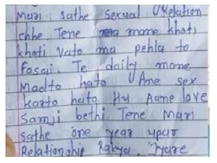 Mari sathe sexual Relation
chhe Tene mane khoti
khoti vato ma pehla to
fosai. Te daily mane
Malto hato Ane sex
karto hato Hu Aane love
Samji bethi Tene Mari
sathe one year upar
Relationship Rakhya, Tyare